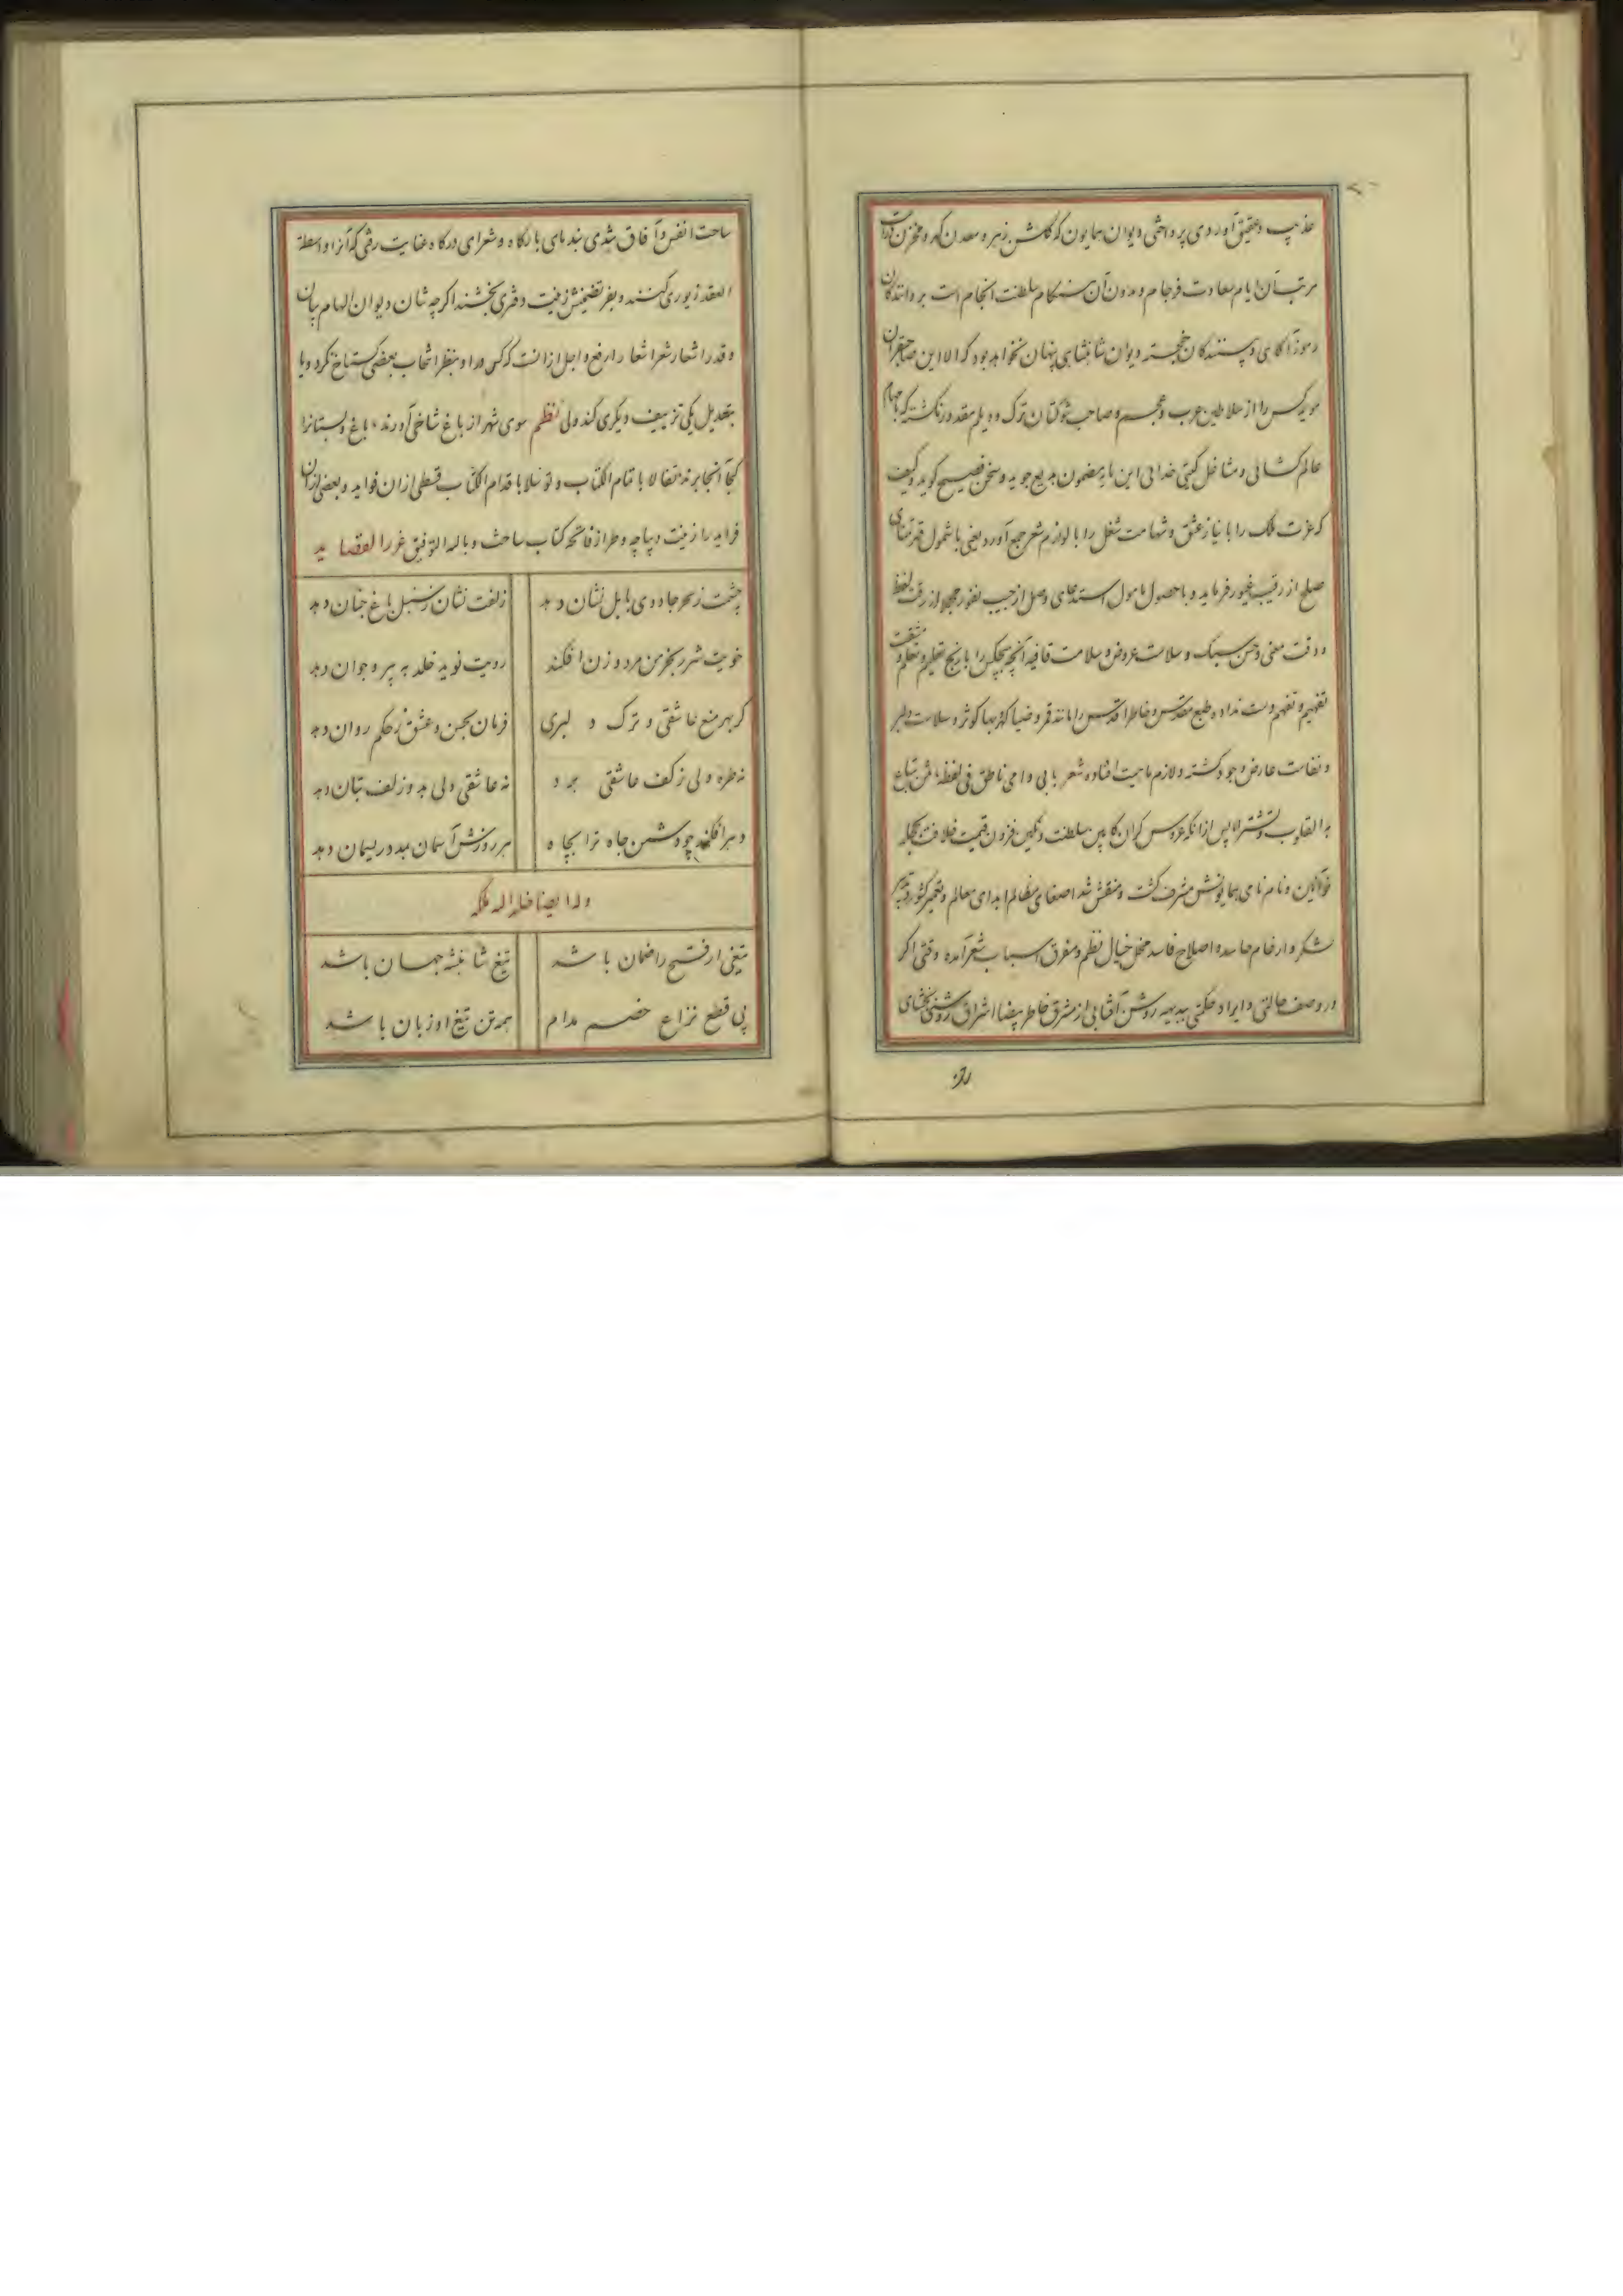 عذیب و عقیق آوردی پرداختی دیوان همایون که گلشن زهر و معدن گهر و مخزن
مرتب آن ایام سعادت فرجام و مدون آن هنگام سلطنت انجام است بر دانندکان
رموز آگاهی و پسندکان خجسته دیوان شاهنشاهی پنهان نخواهد بود که الا این صاحبقران
مؤید کس را از سلاطین عرب و عجم و صاحب شوکتان ترک و دیلم مقدور نکشته که با مهام
عالم کشائی و مشاغل کیتی خدائی این مایه مضمون بدیع جوید و سخن فصیح گوید و کیف
که عزت ملک را با نیاز عشق و شهامت شغل را با لوازم شعر جمع آورد یعنی با شمول
صلح از رقیب غیور فرماید و با حصول مامول استدعای وصل از حبیب نفور از رقت لفظ
و دقت معنی و حسن سبک و سلاست عروض و سلامت قافیه آنچه هیچکس را با رنج تعلیم و تعلم و مشقت
تفهیم و تفهم دست نداد و طبع مقدس و خاطر اقدس را مانند قمر و ضیا کهر بها کوثر و سلاست
و نفاست عارض وجود کشته و لازم ماهیت افتاده شعر بابی و امی ناطق فی لفظه ثمن تباع
به القلوب و تشتری الا پس از آنکه عروس کران کابین سلطنت و نکین فزون قیمت خلافت
خواتین و نام نامی همایونش مشرف کشت و منقش شد اصغای مظالم ابدای معالم و تعمیر کشور و تدبیر
لشکر و ارغام حاسد و اصلاح فاسد مخل خیال نظم و مفرق اسباب شعر آمده وقتی اکر
در وصف حالتی و ایراد حکمتی بدیهه روشن آفتابی از مشرق خاطر بیضا اشراق روشنی بخشای
ساحت انفس و آفاق شدی بندهای بارکاه و شعرای درکاه عنایت رشی که آنرا واسطة
العقد زیوری کنند و بفر تضمینش زینت دفتری بخشند اکرچه شان دیوان الهام بیان
و قدر اشعار شعرا شعار ارفع و اجل از آنست که کس مدا و منظر انتخاب بعضی کستاخ کرد و یا
بتعدیل یکی تزییف دیکری کند ولی نظم سوی شهر از باغ شاخی آورند باغ و بستانرا
کجا آنجا برند تفالا با تمام الکتاب و توسلا باقدام الکتاب قسطی از آن فواید و بعضی از آن
فراید را زینت دیباچه و طراز فاتحه کتاب ساخت و بالله التوفیق غرر القصاید
چشمت ز سحر جادوی بابل نشان دهد زلفت نشان ز سنبل باغ جنان دهد
خویت شرر بخرمن مرد و زن افکند رویت نوید خلد به پیر و جوان دهد
کر بهر منع عاشقی و ترک دلبری فرمان بحسن و عشق ز حکم روان دهد
نه طره دلی ز کف عاشقی برد نه عاشقی دلی بدو زلف بتان دهد
دهر افکند چو دشمن جاه ترا بچاه هر روزش آسمان بدو ریسمان دهد
وله ایضا خلد الله ملکه
تیغی ار فتح را ضمان باشد تیغ شاهنشه جهان باشد
پی قطع نزاع خصم مدام همه تن تیغ او زبان باشد